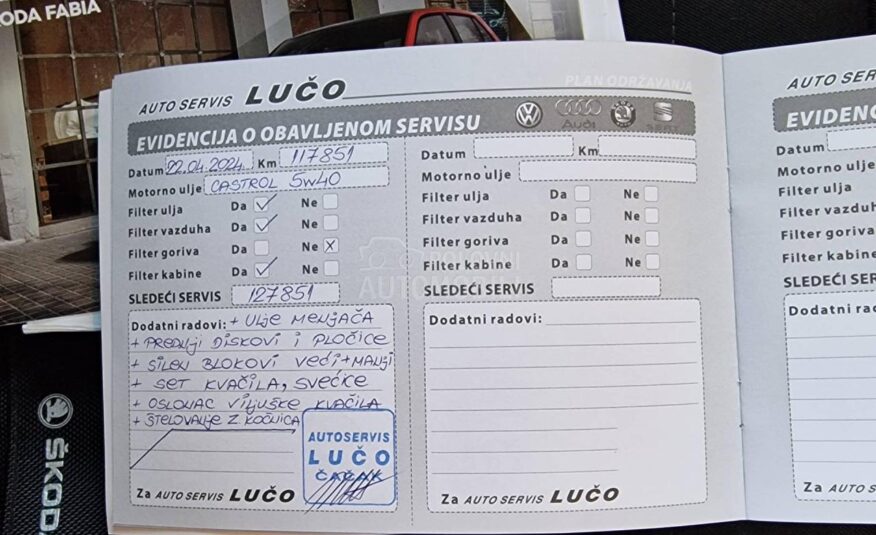 ODA FABIA
AUTO SERVIS LUČO
PLAN ODRŽAVANJA
EVIDENCIJA O OBAVLJENOM SERVISU
Audi
SEAT
Datum 22.04.2024. Km 117851
Motorno ulje CASTROL 5W40
Filter ulja Da ✓ Ne
Filter vazduha Da ✓ Ne
Filter goriva Da Ne X
Filter kabine Da ✓ Ne
SLEDEĆI SERVIS 127851
Dodatni radovi: + ULJE MENJAČA
+ PREDNJI DISKOVI I PLOČICE
+ SILEN BLOKOVI VEĆI+MANJI
+ SET KVAČILA, SVEĆKE
+ OSLONAC VILJUŠKE KVAČILA
+ ŠTELOVANJE Z. KOČNICA
AUTOSERVIS
LUČO
ČAČAK
Za AUTO SERVIS LUČO
Datum Km
Motorno ulje
Filter ulja Da Ne
Filter vazduha Da Ne
Filter goriva Da Ne
Filter kabine Da Ne
SLEDEĆI SERVIS
Dodatni radovi:
Za AUTO SERVIS LUČO
POLOVNI
AUTOMOBILI
AUTO SER
EVIDEN
Datum
Motorno ulje
Filter ulja
Filter vazduh
Filter goriva
Filter kabine
SLEDEĆI SERV
Dodatni rado
Za AUTO S
ŠKODA